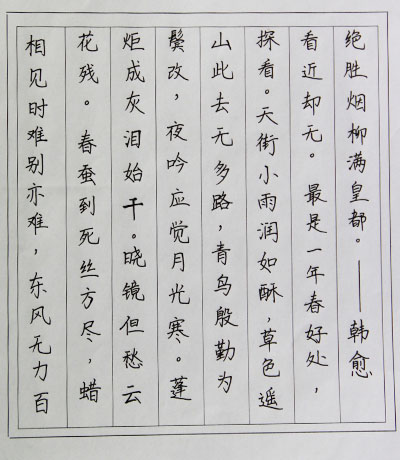 相见时难别亦难，东风无力百
花残。春蚕到死丝方尽，蜡
炬成灰泪始干。晓镜但愁云
鬓改，夜吟应觉月光寒。蓬
山此去无多路，青鸟殷勤为
探看。天街小雨润如酥，草色遥
看近却无。最是一年春好处，
绝胜烟柳满皇都。——韩愈